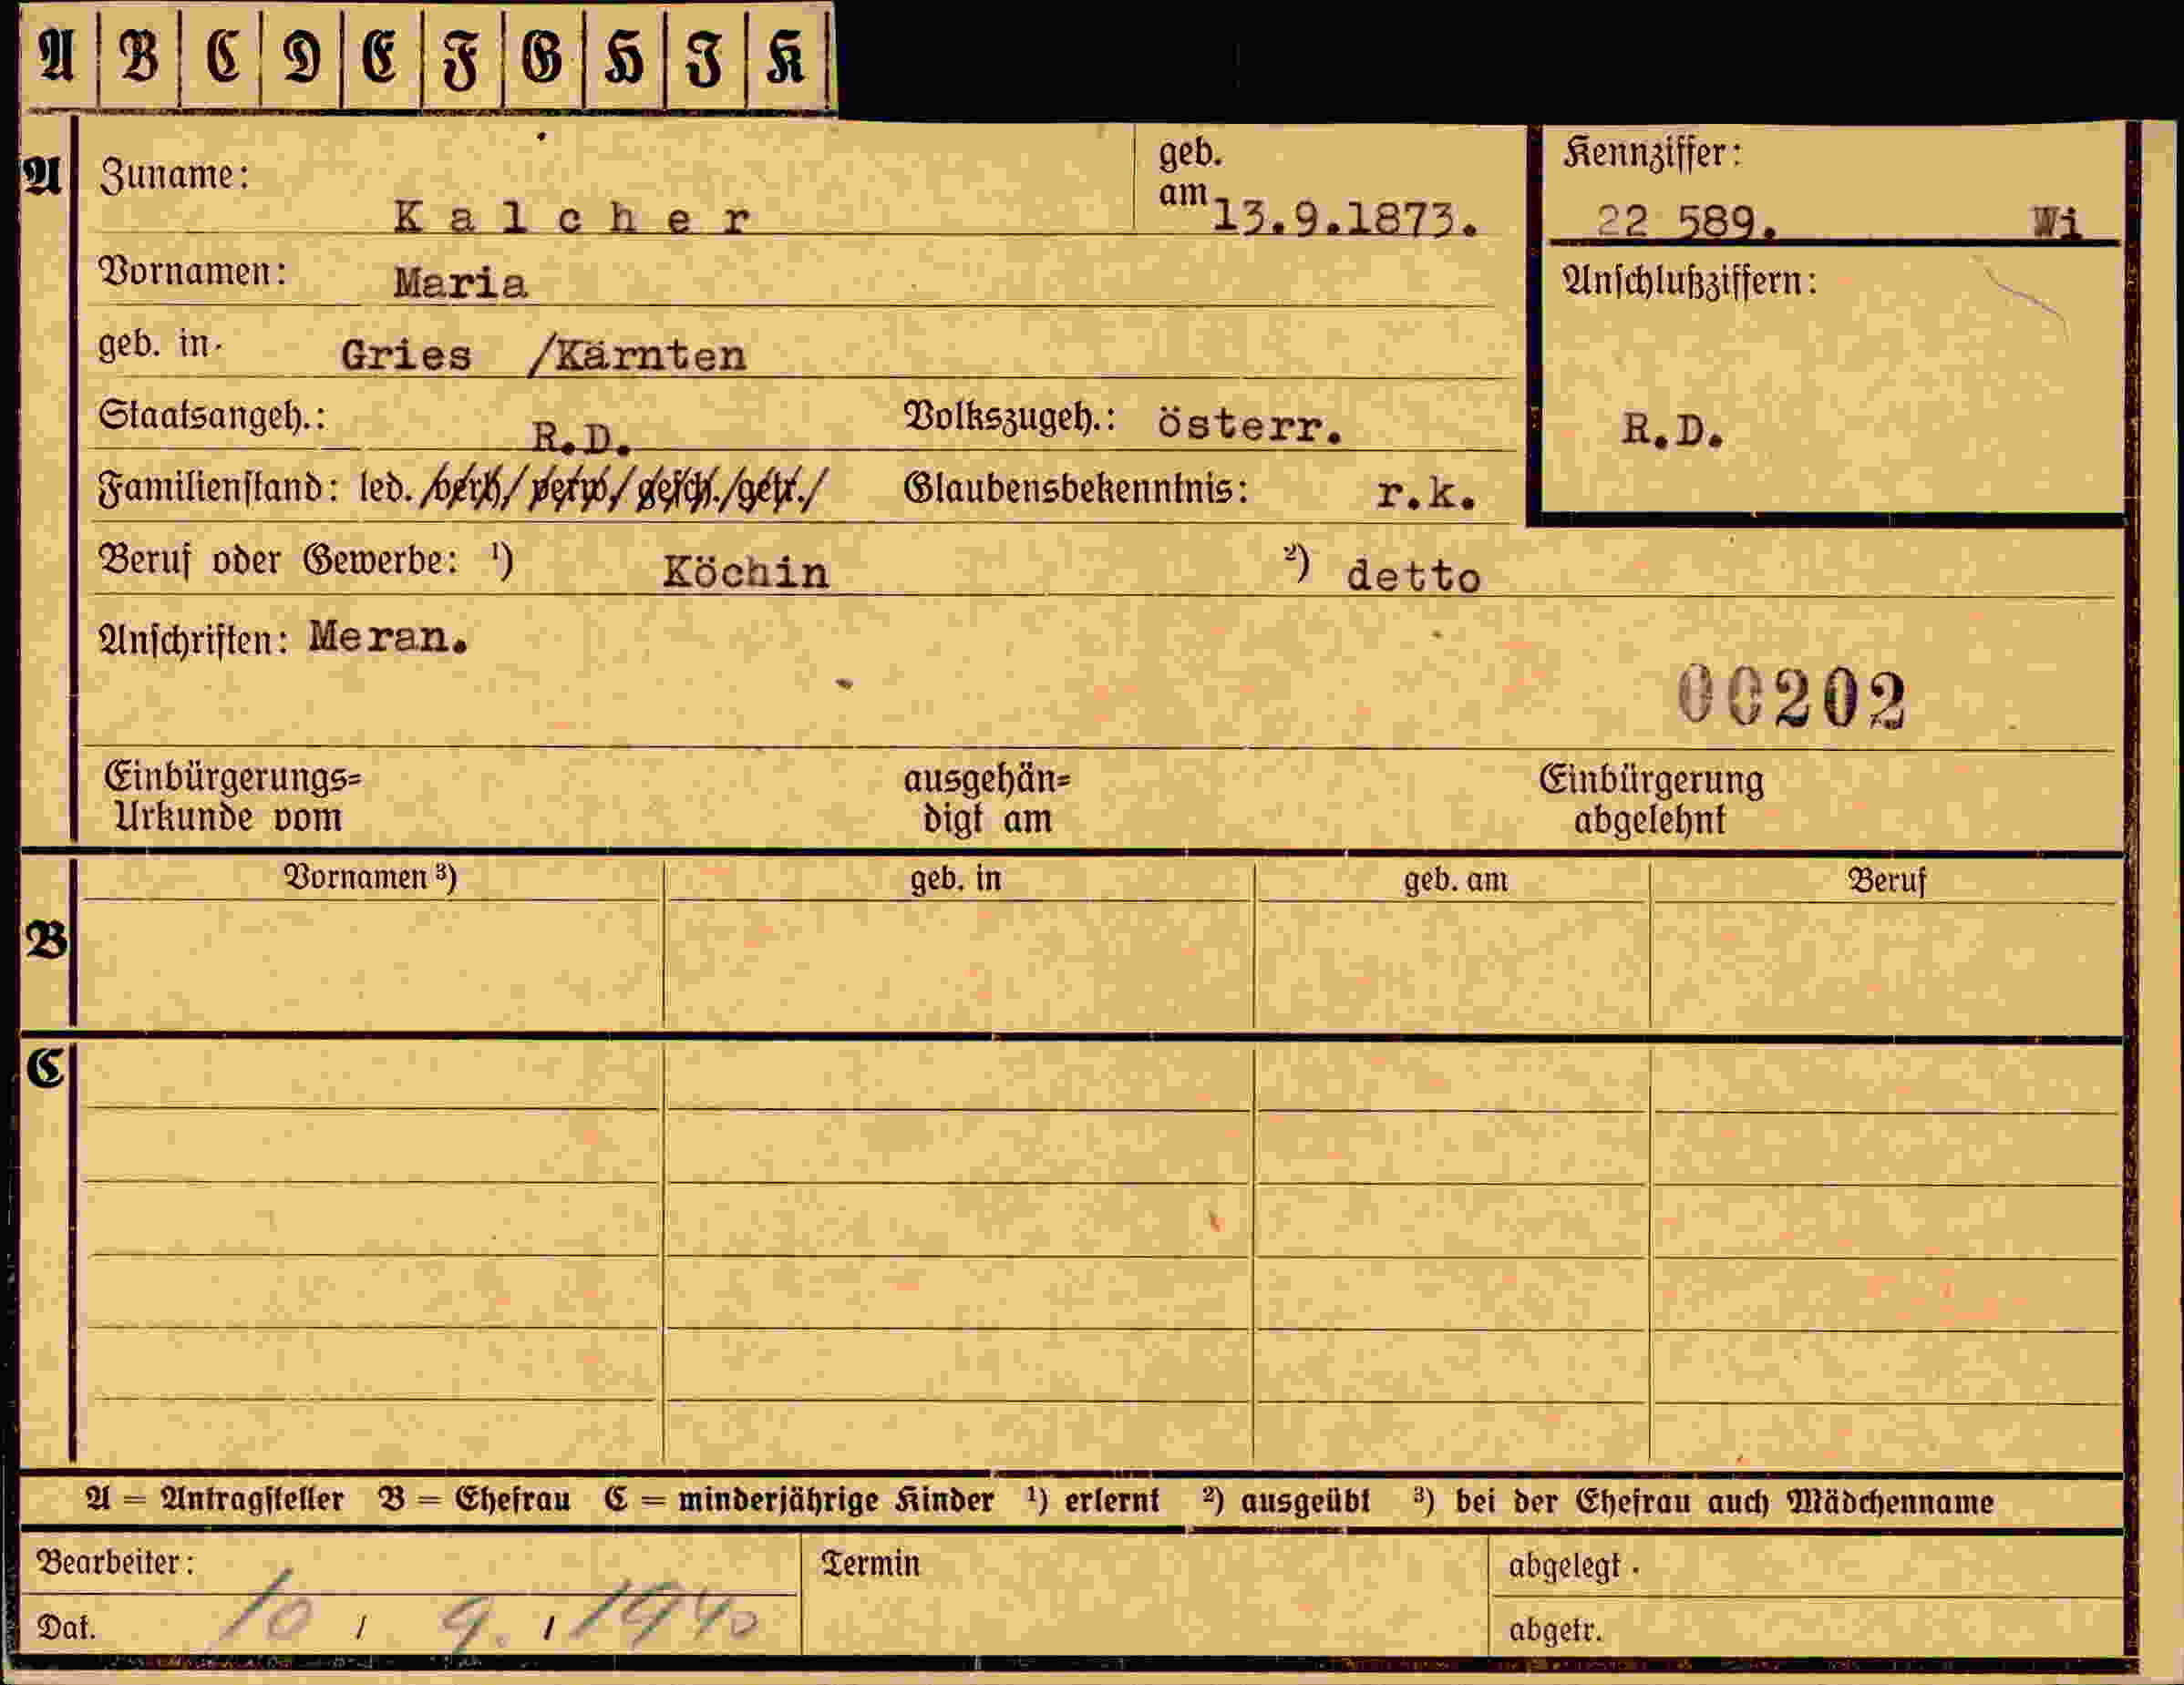 A B C D E F G H I K
A Zuname: Kalcher geb. am 13.9.1873. Kennziffer: 22 589. Wi
Vornamen: Maria Anschlußziffern:
geb. in. Gries /Kärnten
Staatsangeh.: R.D. Volkszugeh.: österr. R.D.
Familienstand: led./verh/verw./gesch./getr./ Glaubensbekenntnis: r.k.
Beruf oder Gewerbe: ¹) Köchin ²) detto
Anschriften: Meran.
00202
Einbürgerungs= ausgehän= Einbürgerung
Urkunde vom digt am abgelehnt
Vornamen ³) geb. in geb. am Beruf
B
C
A = Antragsteller B = Ehefrau C = minderjährige Kinder ¹) erlernt ²) ausgeübt ³) bei der Ehefrau auch Mädchenname
Bearbeiter: Termin abgelegt .
Dat. 10 / 9. / 1940 abgetr.